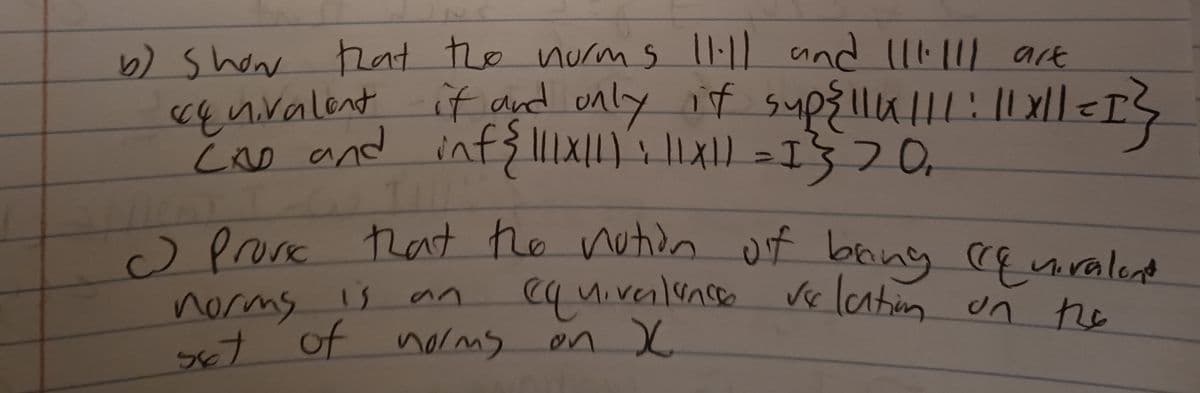 b) Show that the norms ||·|| and |||·||| are
equivalent if and only if sup{|||x||| : ||x|| = 1}
< ∞ and inf{|||x||| : ||x|| = 1} > 0.
c) Prove that the notion of being equivalent
norms is an equivalence relation on the
set of norms on X